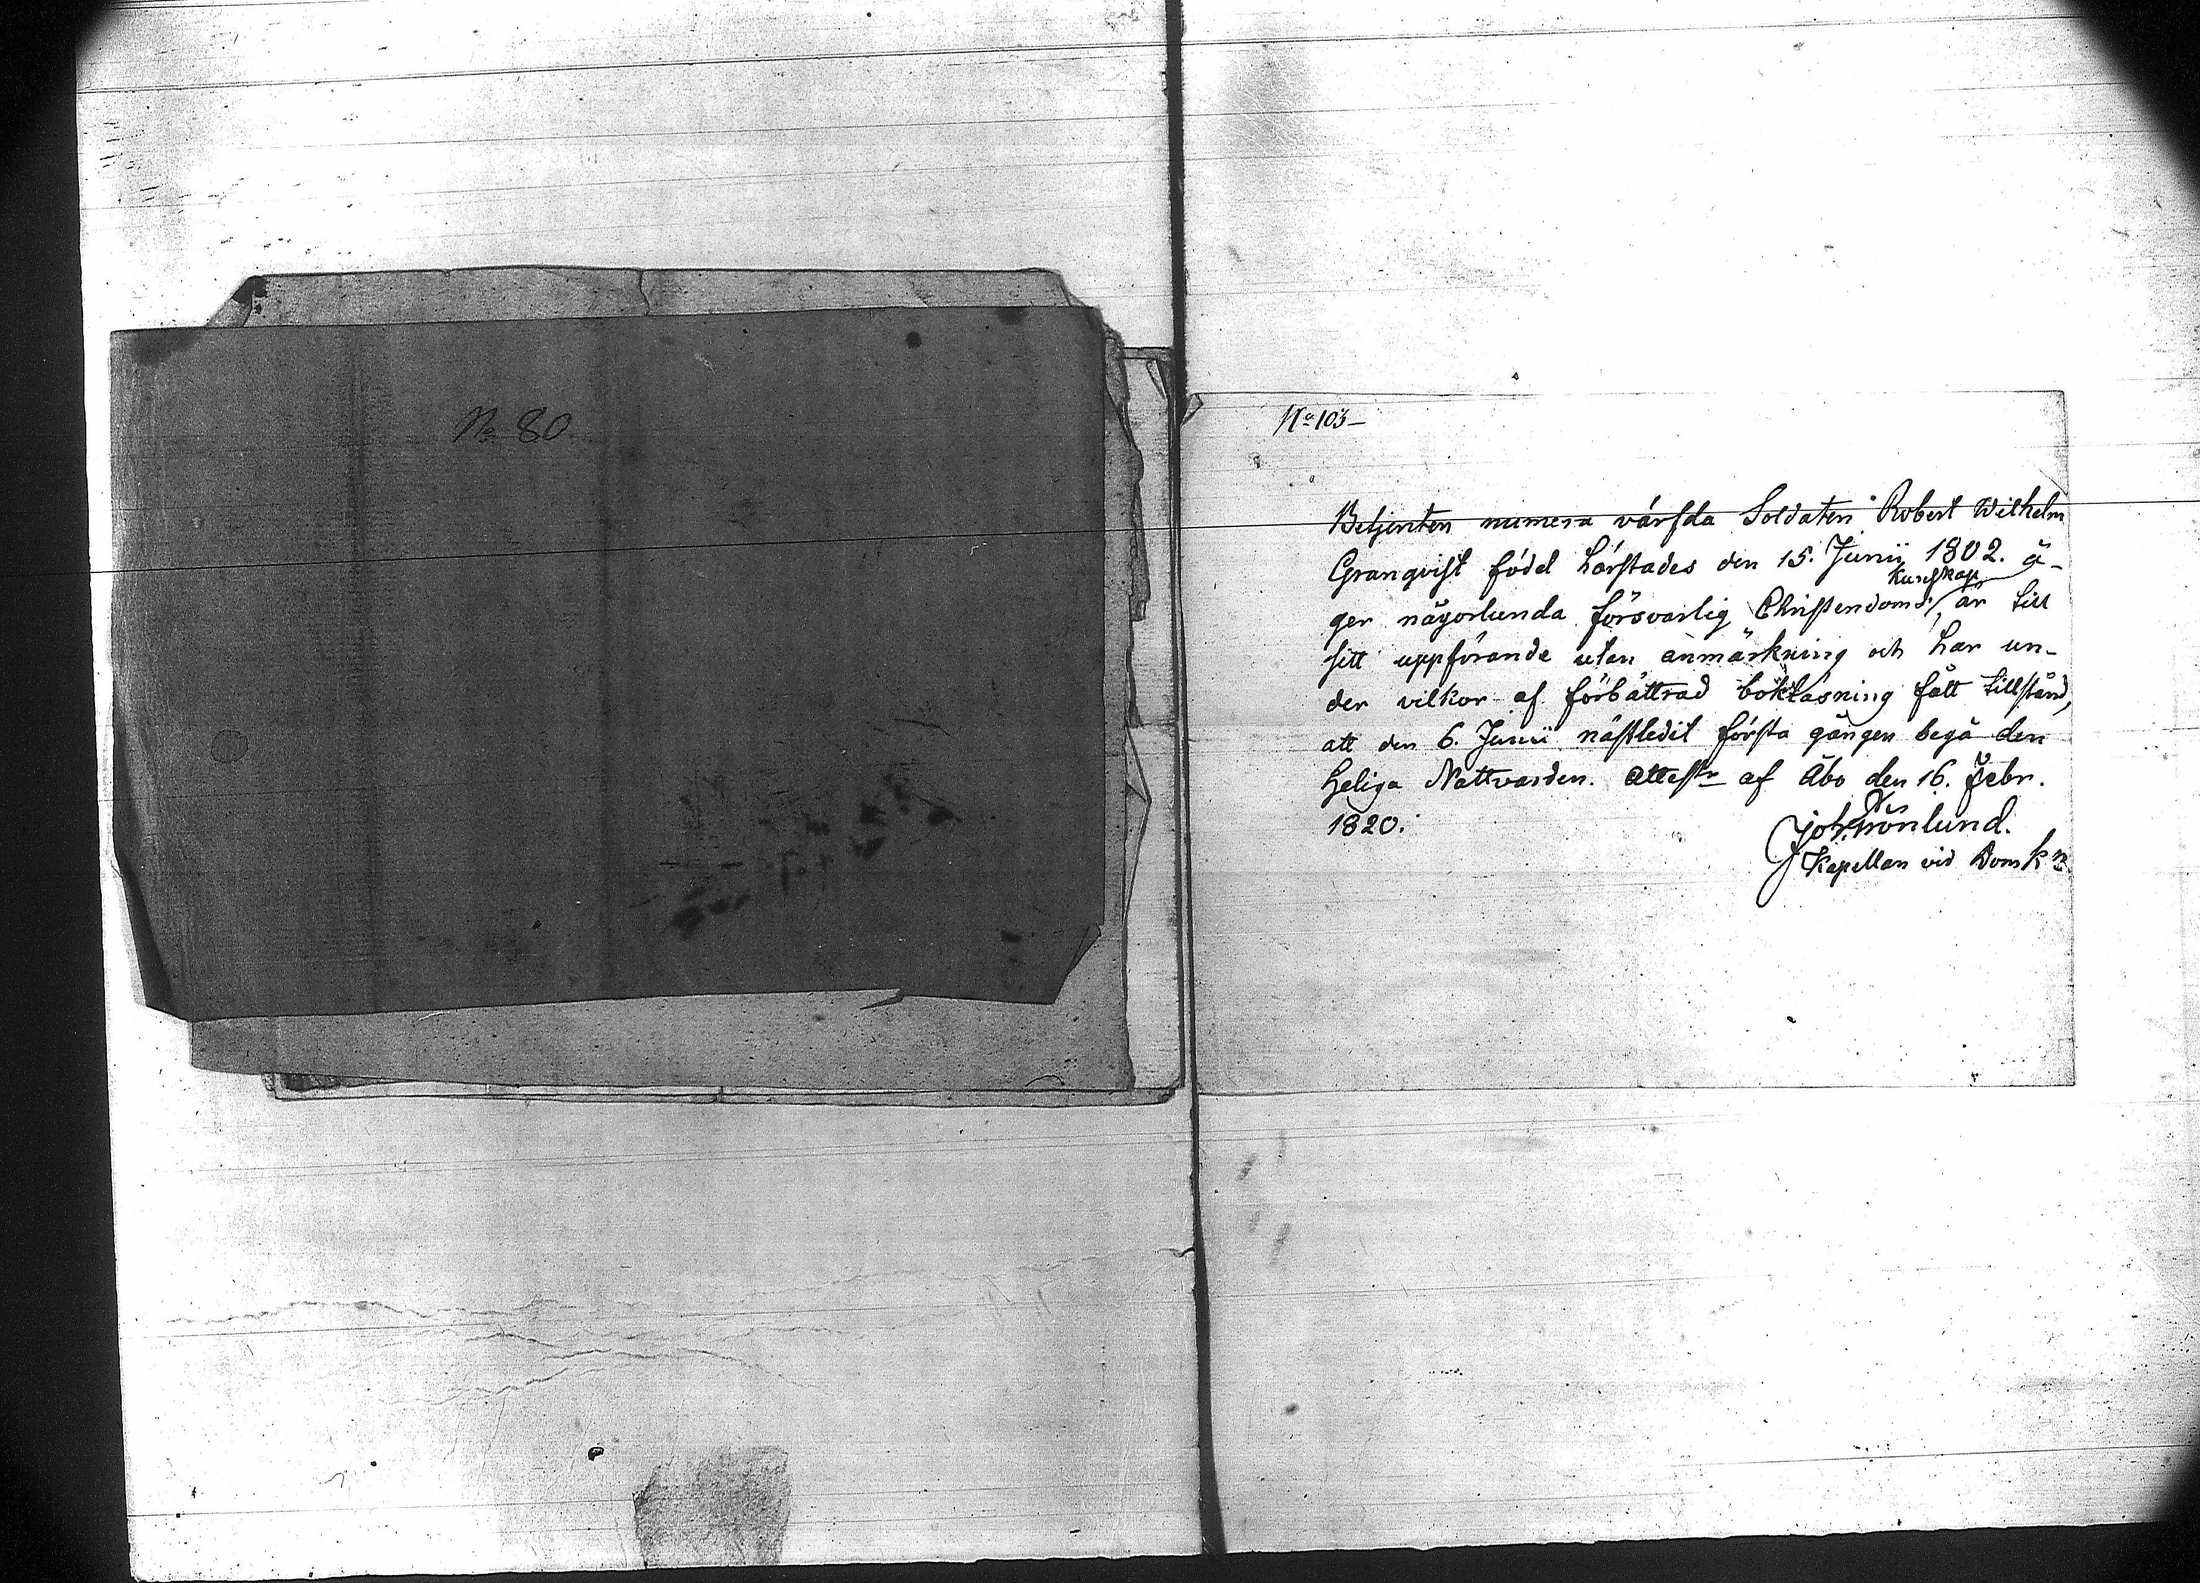 No 80
No 103
Betjenten numera värfda Soldaten Robert Wilhelm
Granqvist född härstades den 15. Junii 1802. ä-
ger någorlunda försvarlig Christendoms kunskap, är till
sitt uppförande utan anmärkning och har un-
der vilkor af förbättrad bokläsning fått tillstånd,
att den 6. Junii nästledit första gången begå den
heliga Nattvarden. Attestr af Åbo den 16. Febr.
1820.
Joh. Grönlund.
Kapellan vid Domk